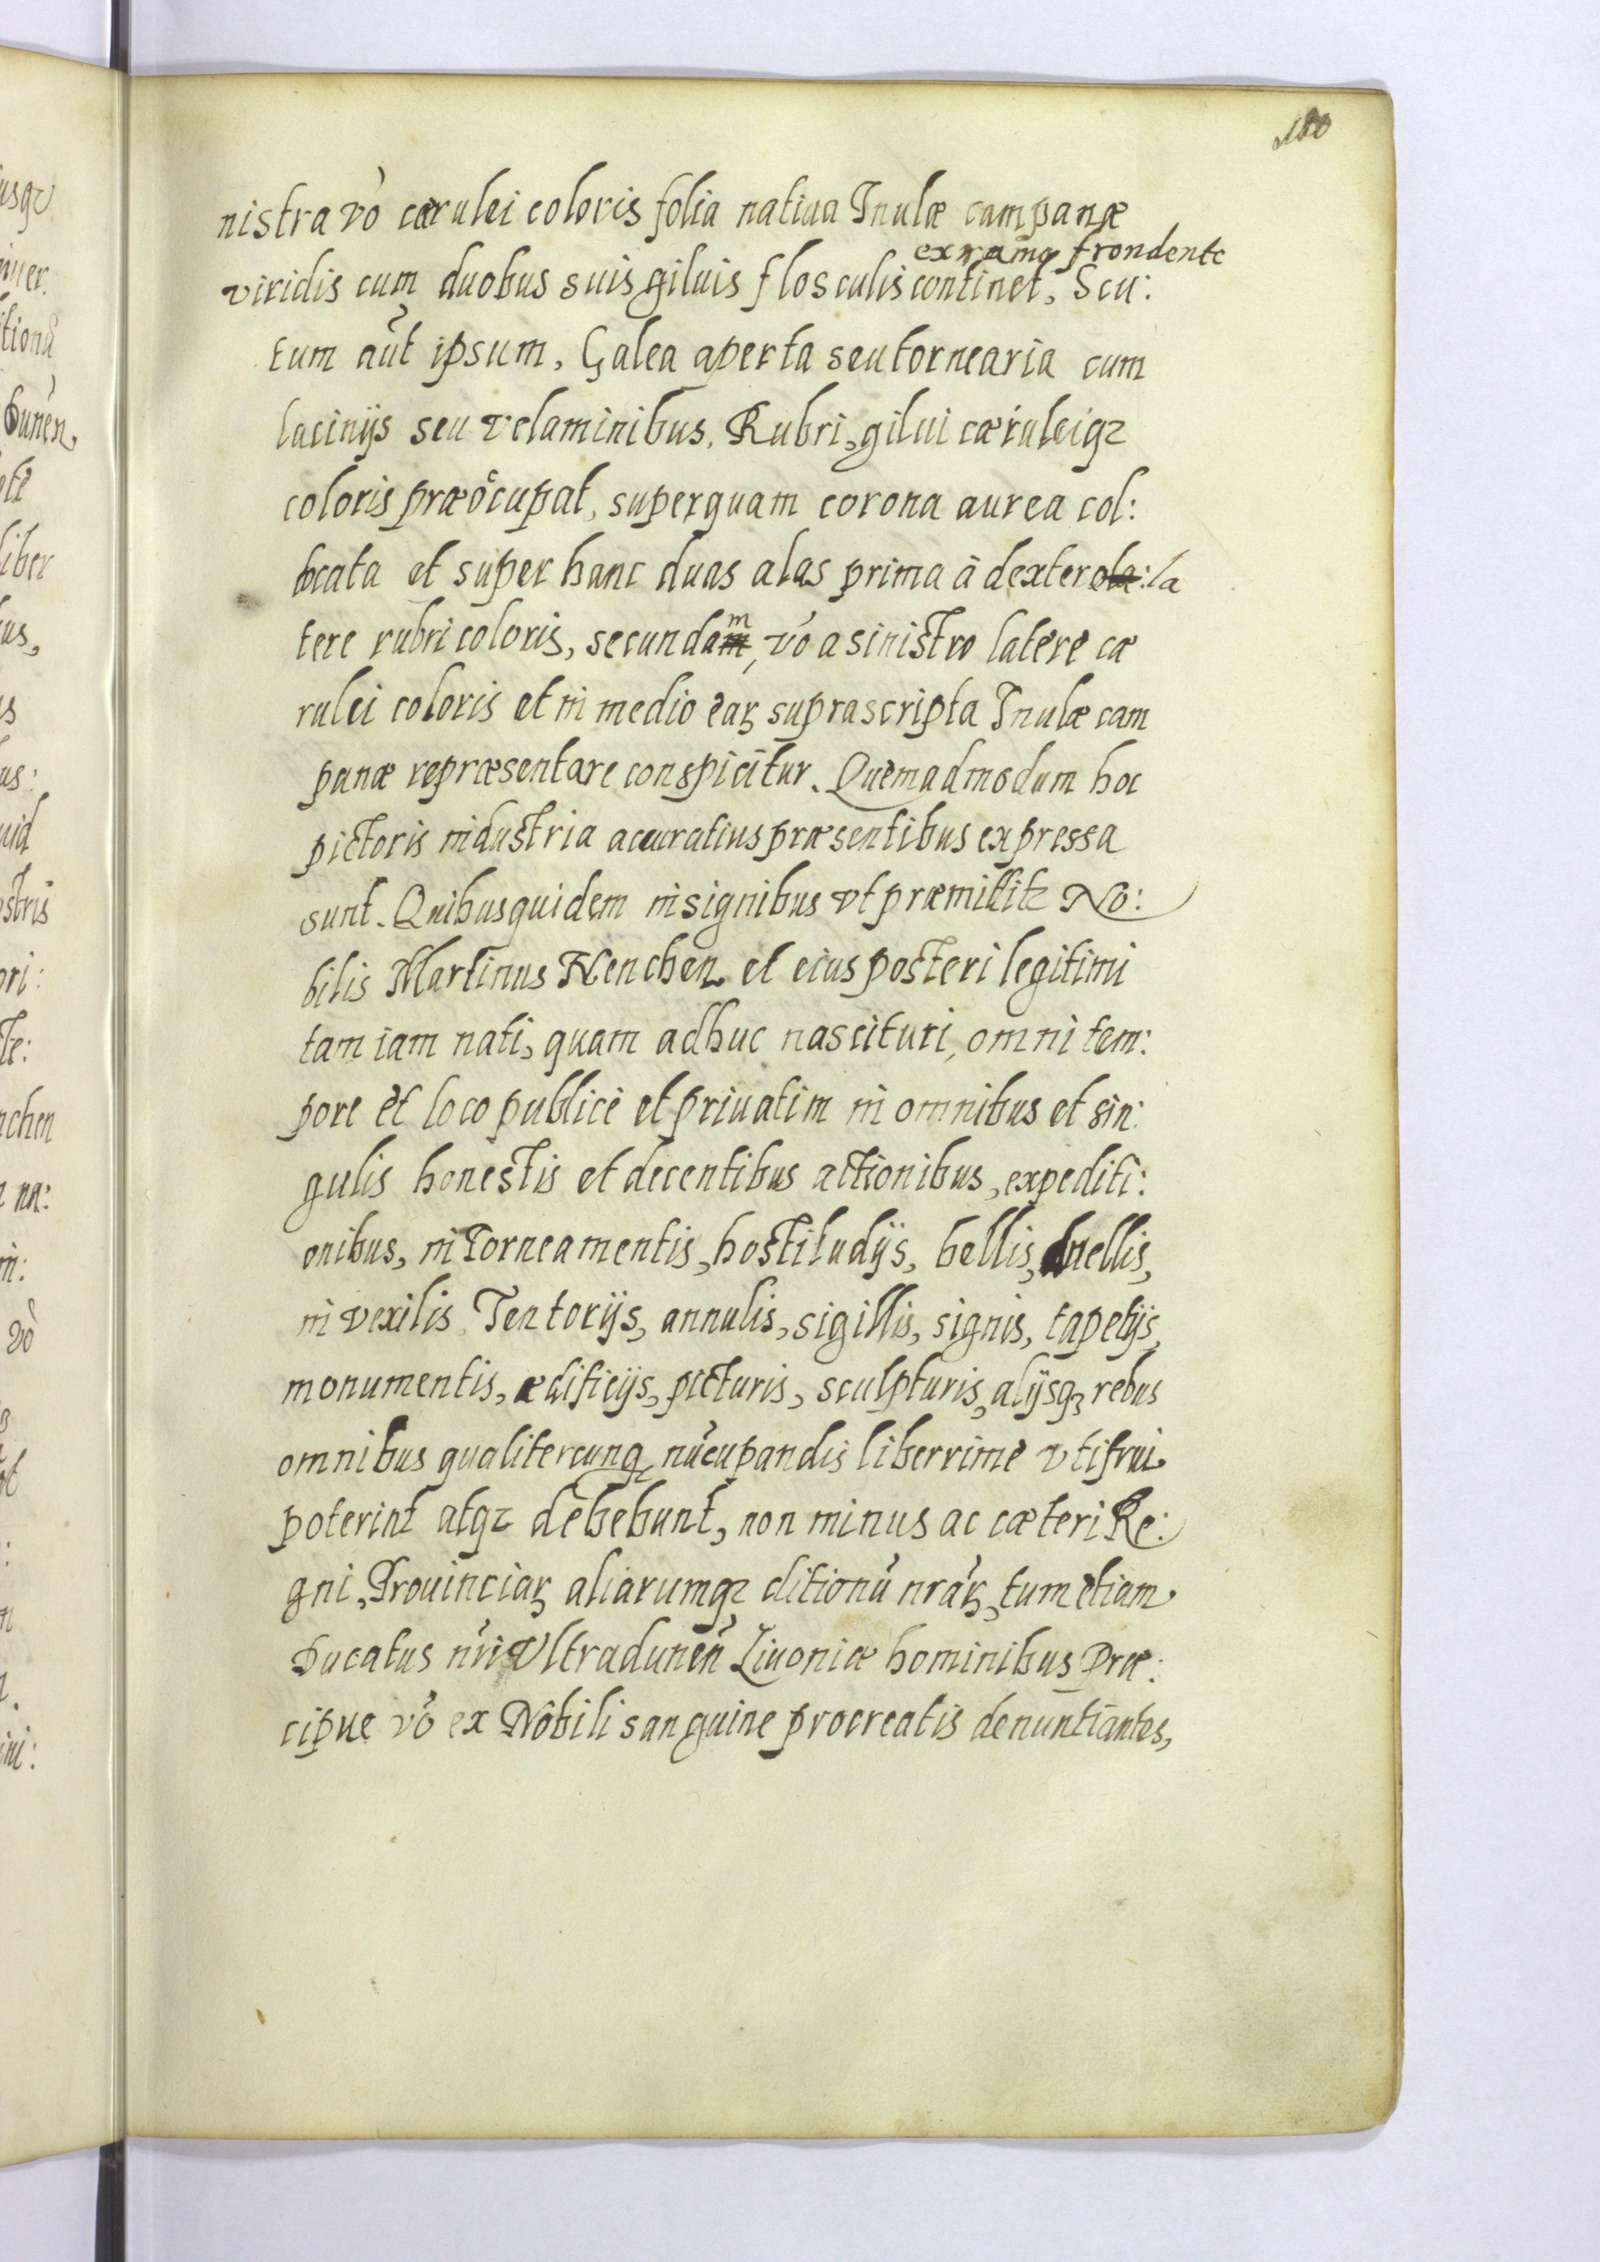 100
nistra vò cærulei coloris folia natiua Inulæ campanæ
ex ramo frondente
viridis cum duobus suis giluis flosculis continet, Scu:
tum aūt ipsum, Galea aperta seu tornearia cum
lacinijs seu velaminibus, Rubri, gilui cæruleiqz
coloris præoc̃upat, super quam corona aurea col:
locata et super hanc duas alas prima à dextero la: la
tere rubri coloris, secundam m, vò a sinistro latere cæ
rulei coloris et in medio eaꝝ suprascripta Inulæ cam
panæ repræsentare conspicitur. Quemadmodum hoc
pictoris industria accuratius præsentibus expressa
sunt. Quibus quidem insignibus vt præmittitz No:
bilis Martinus Nenchen et eius posteri legitimi
tam iam nati, quam adhuc nascituri, omni tem:
pore et loco publicè et priuatim in omnibus et sin:
gulis honestis et decentibus actionibus, expediti:
onibus, in Torneamentis, hostiludijs, bellis, duellis,
in vexilis, Tentorijs, annulis, sigillis, signis, tapetijs,
monumentis, ædificijs, picturis, sculpturis, alijsqz rebus
omnibus qualitercunqz nūcupandis liberrimè vti frui
poterint atqz debebunt, non minus ac cæteri Re:
gni, Prouinciaꝝ aliarumqz ditionū nrāꝝ, tum etiam
Ducatus nrī Vltradunēn Liuoniæ hominibus Præ:
cipue vò ex Nobili sanguine procreatis denuntiantes,